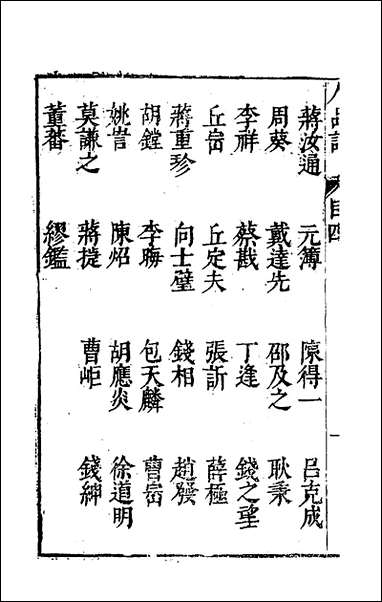 蔣汝通 元簿 陳得一 呂克成
周葵 戴達先 邵及之 耿秉
李祥 蔡戡 丁逢 錢之望
丘崈 丘定夫 張訢 薛極
蔣重珍 向士璧 錢相 趙發
胡鏜 李晦 包天麟 曹岳
姚訔 陳炤 胡應炎 徐道明
莫謙之 蔣捷 曹岠 錢紳
董蕃 繆鑑